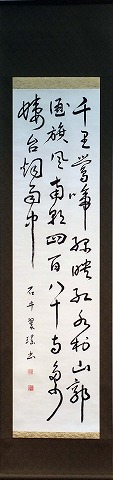 千里鶯啼緑映紅水村山郭
酒旗風南朝四百八十寺多少
樓台烟雨中
石井翠書